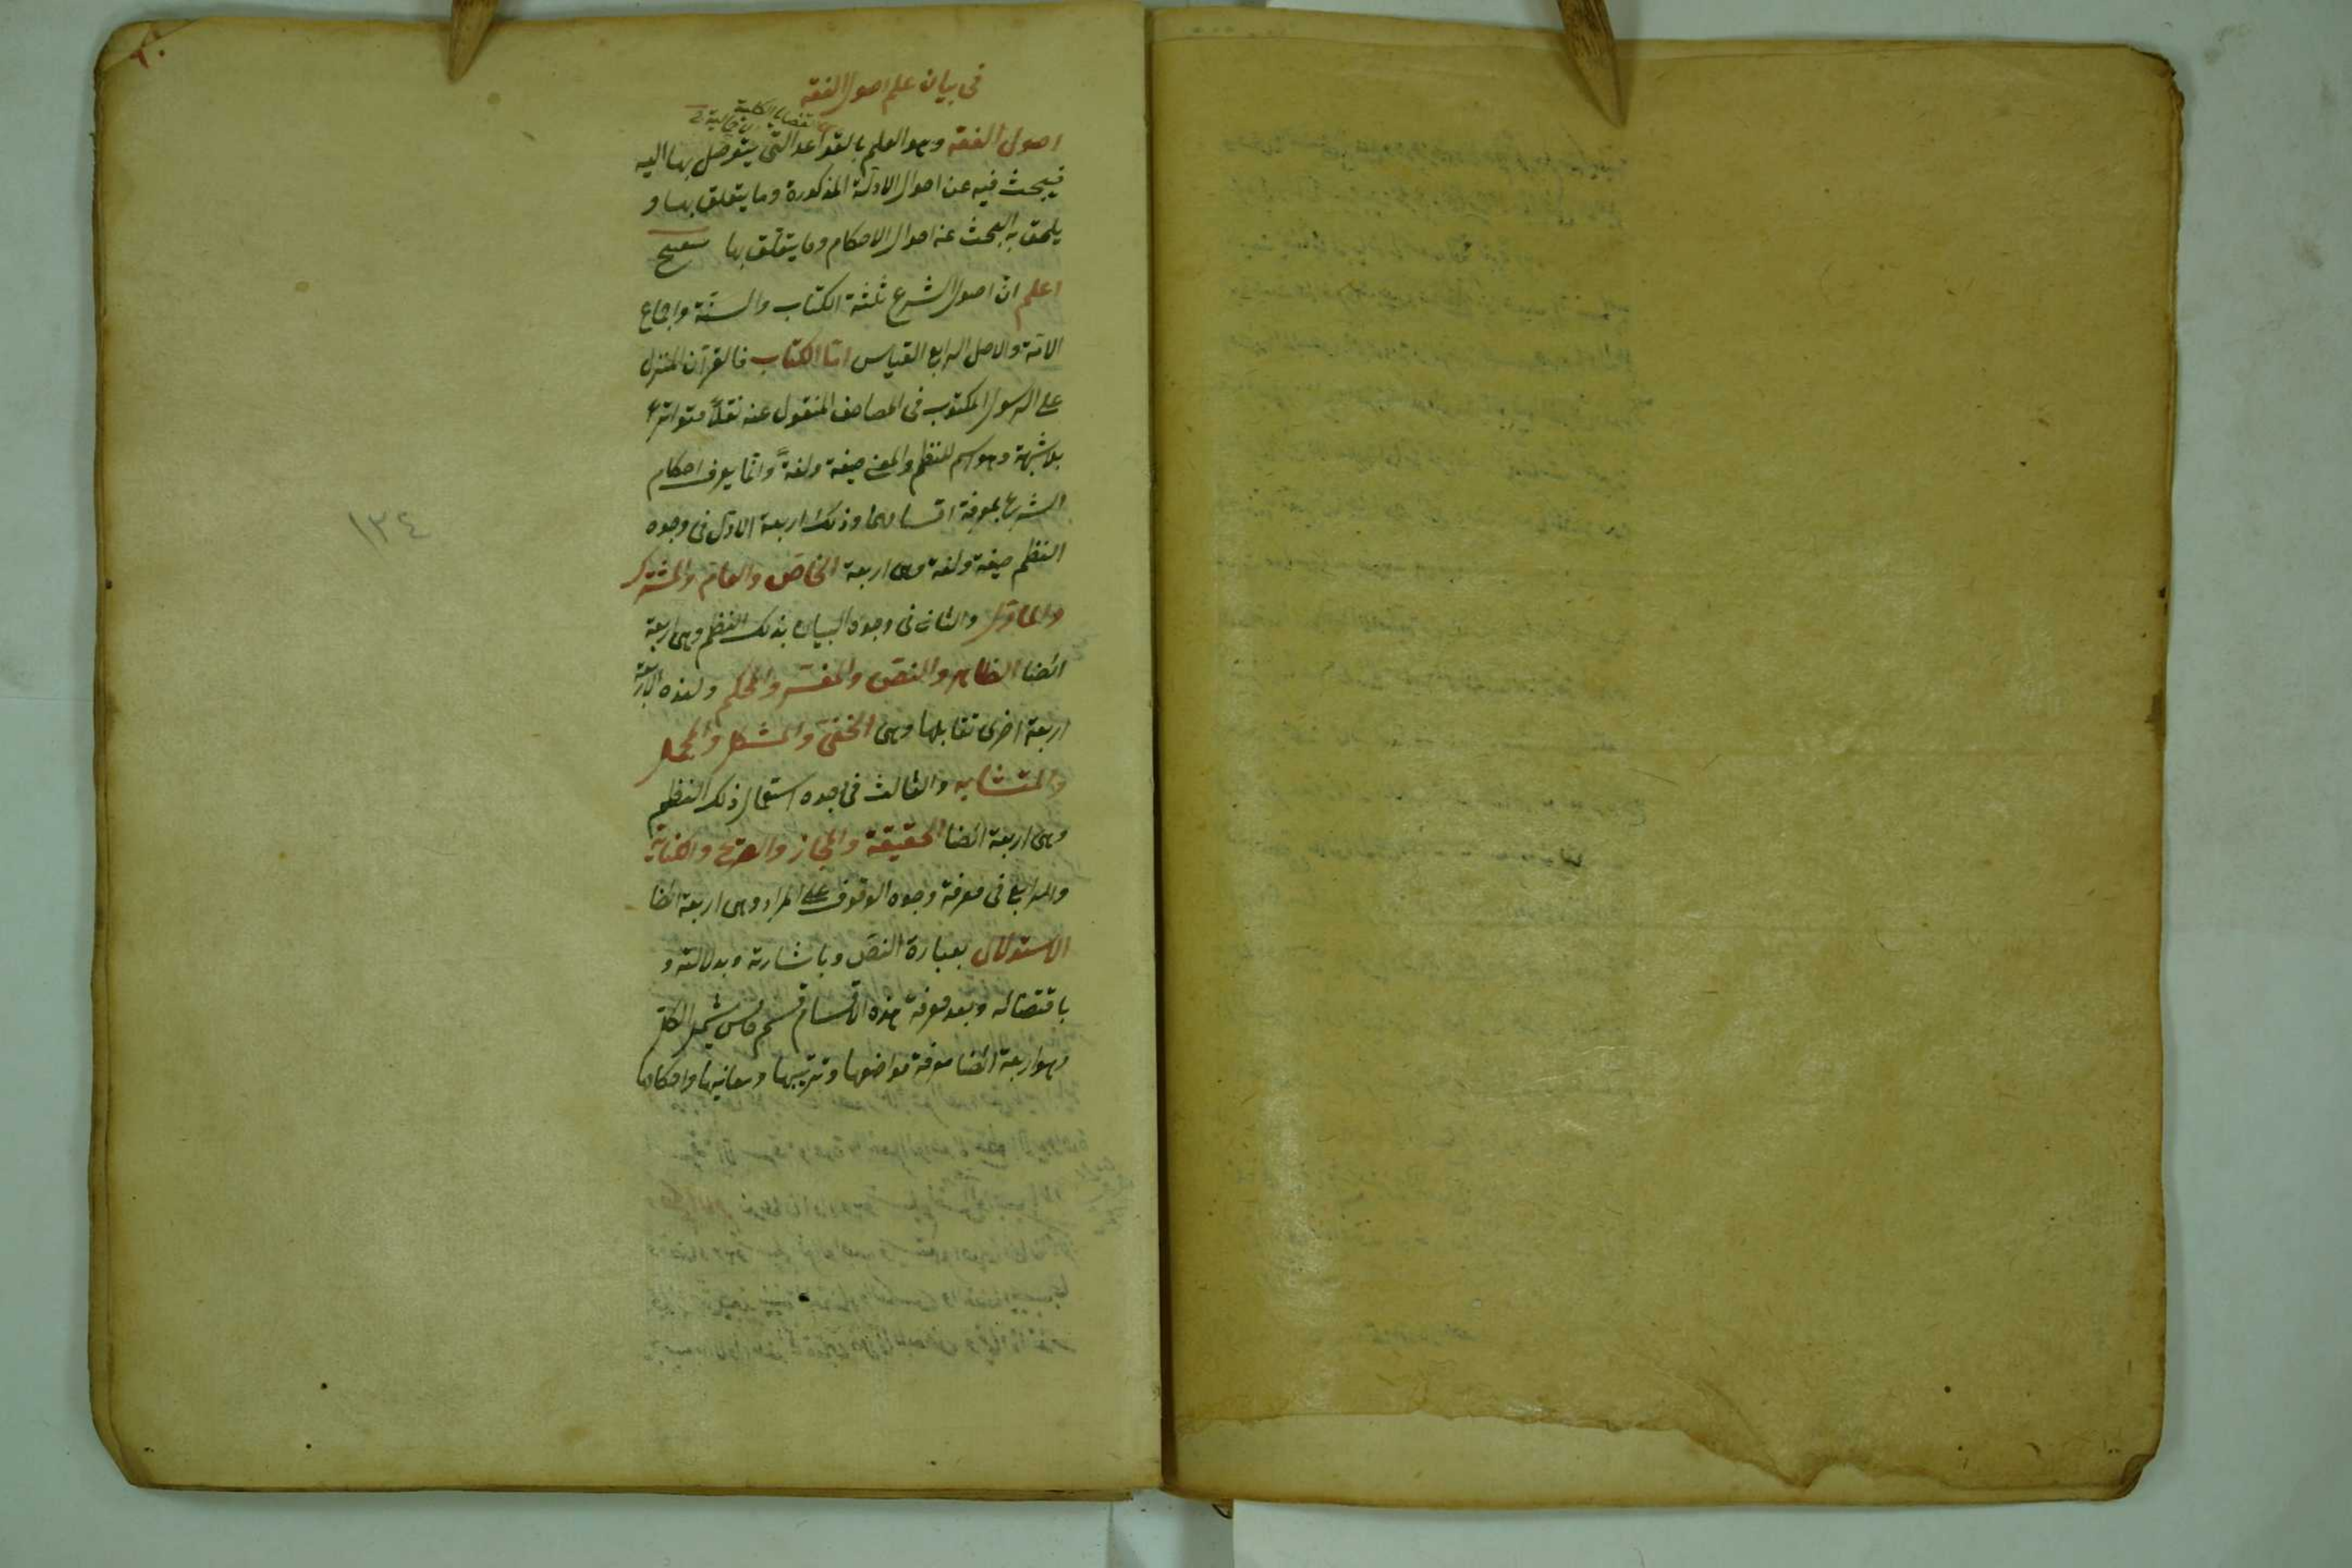 ٢٠
في بيان علم اصول الفقه
القضايا الكلية
اصول الفقه وهو العلم بالقواعد التي يتوصل بها اليه
فيبحث فيه عن احوال الادلة المذكورة وما يتعلق بها و
يلحق به البحث عن احوال الاحكام وما يتعلق بها
اعلم ان اصول الشرع ثلثة الكتاب والسنة واجماع
الامة والاصل الرابع القياس اما الكتاب فالقرآن المنزل
على الرسول المكتوب في المصاحف المنقول عنه نقلاً متواتراً
بلا شبهة وهو اسم للنظم والمعنى صيغة ولغةً وانما يعرف احكام
الشرع بمعرفة اقسامهما وذلك اربعة الاول في وجوه
النظم صيغة ولغة وهى اربعة الخاص والعام والمشترك
والمأول والثانى في وجوه البيان بذلك النظم وهى اربعة
ايضا الظاهر والنص والمفسر والمحكم ولهذه الاربعة
اربعة اخرى تقابلها وهى الخفى والمشكل والمجمل
والمتشابه والثالث في وجوه استعمال ذلك النظم
وهى اربعة ايضا الحقيقة والمجاز والصريح والكناية
والرابع في معرفة وجوه الوقوف على المراد وهى اربعة ايضا
الاستدلال بعبارة النص وباشارته وبدلالته و
باقتضائه وبعد معرفة هذه الاقسام قسم خامس يشمل الكل
وهو اربعة ايضا معرفة مواضعها وترتيبها ومعانيها واحكامها
١٣٤